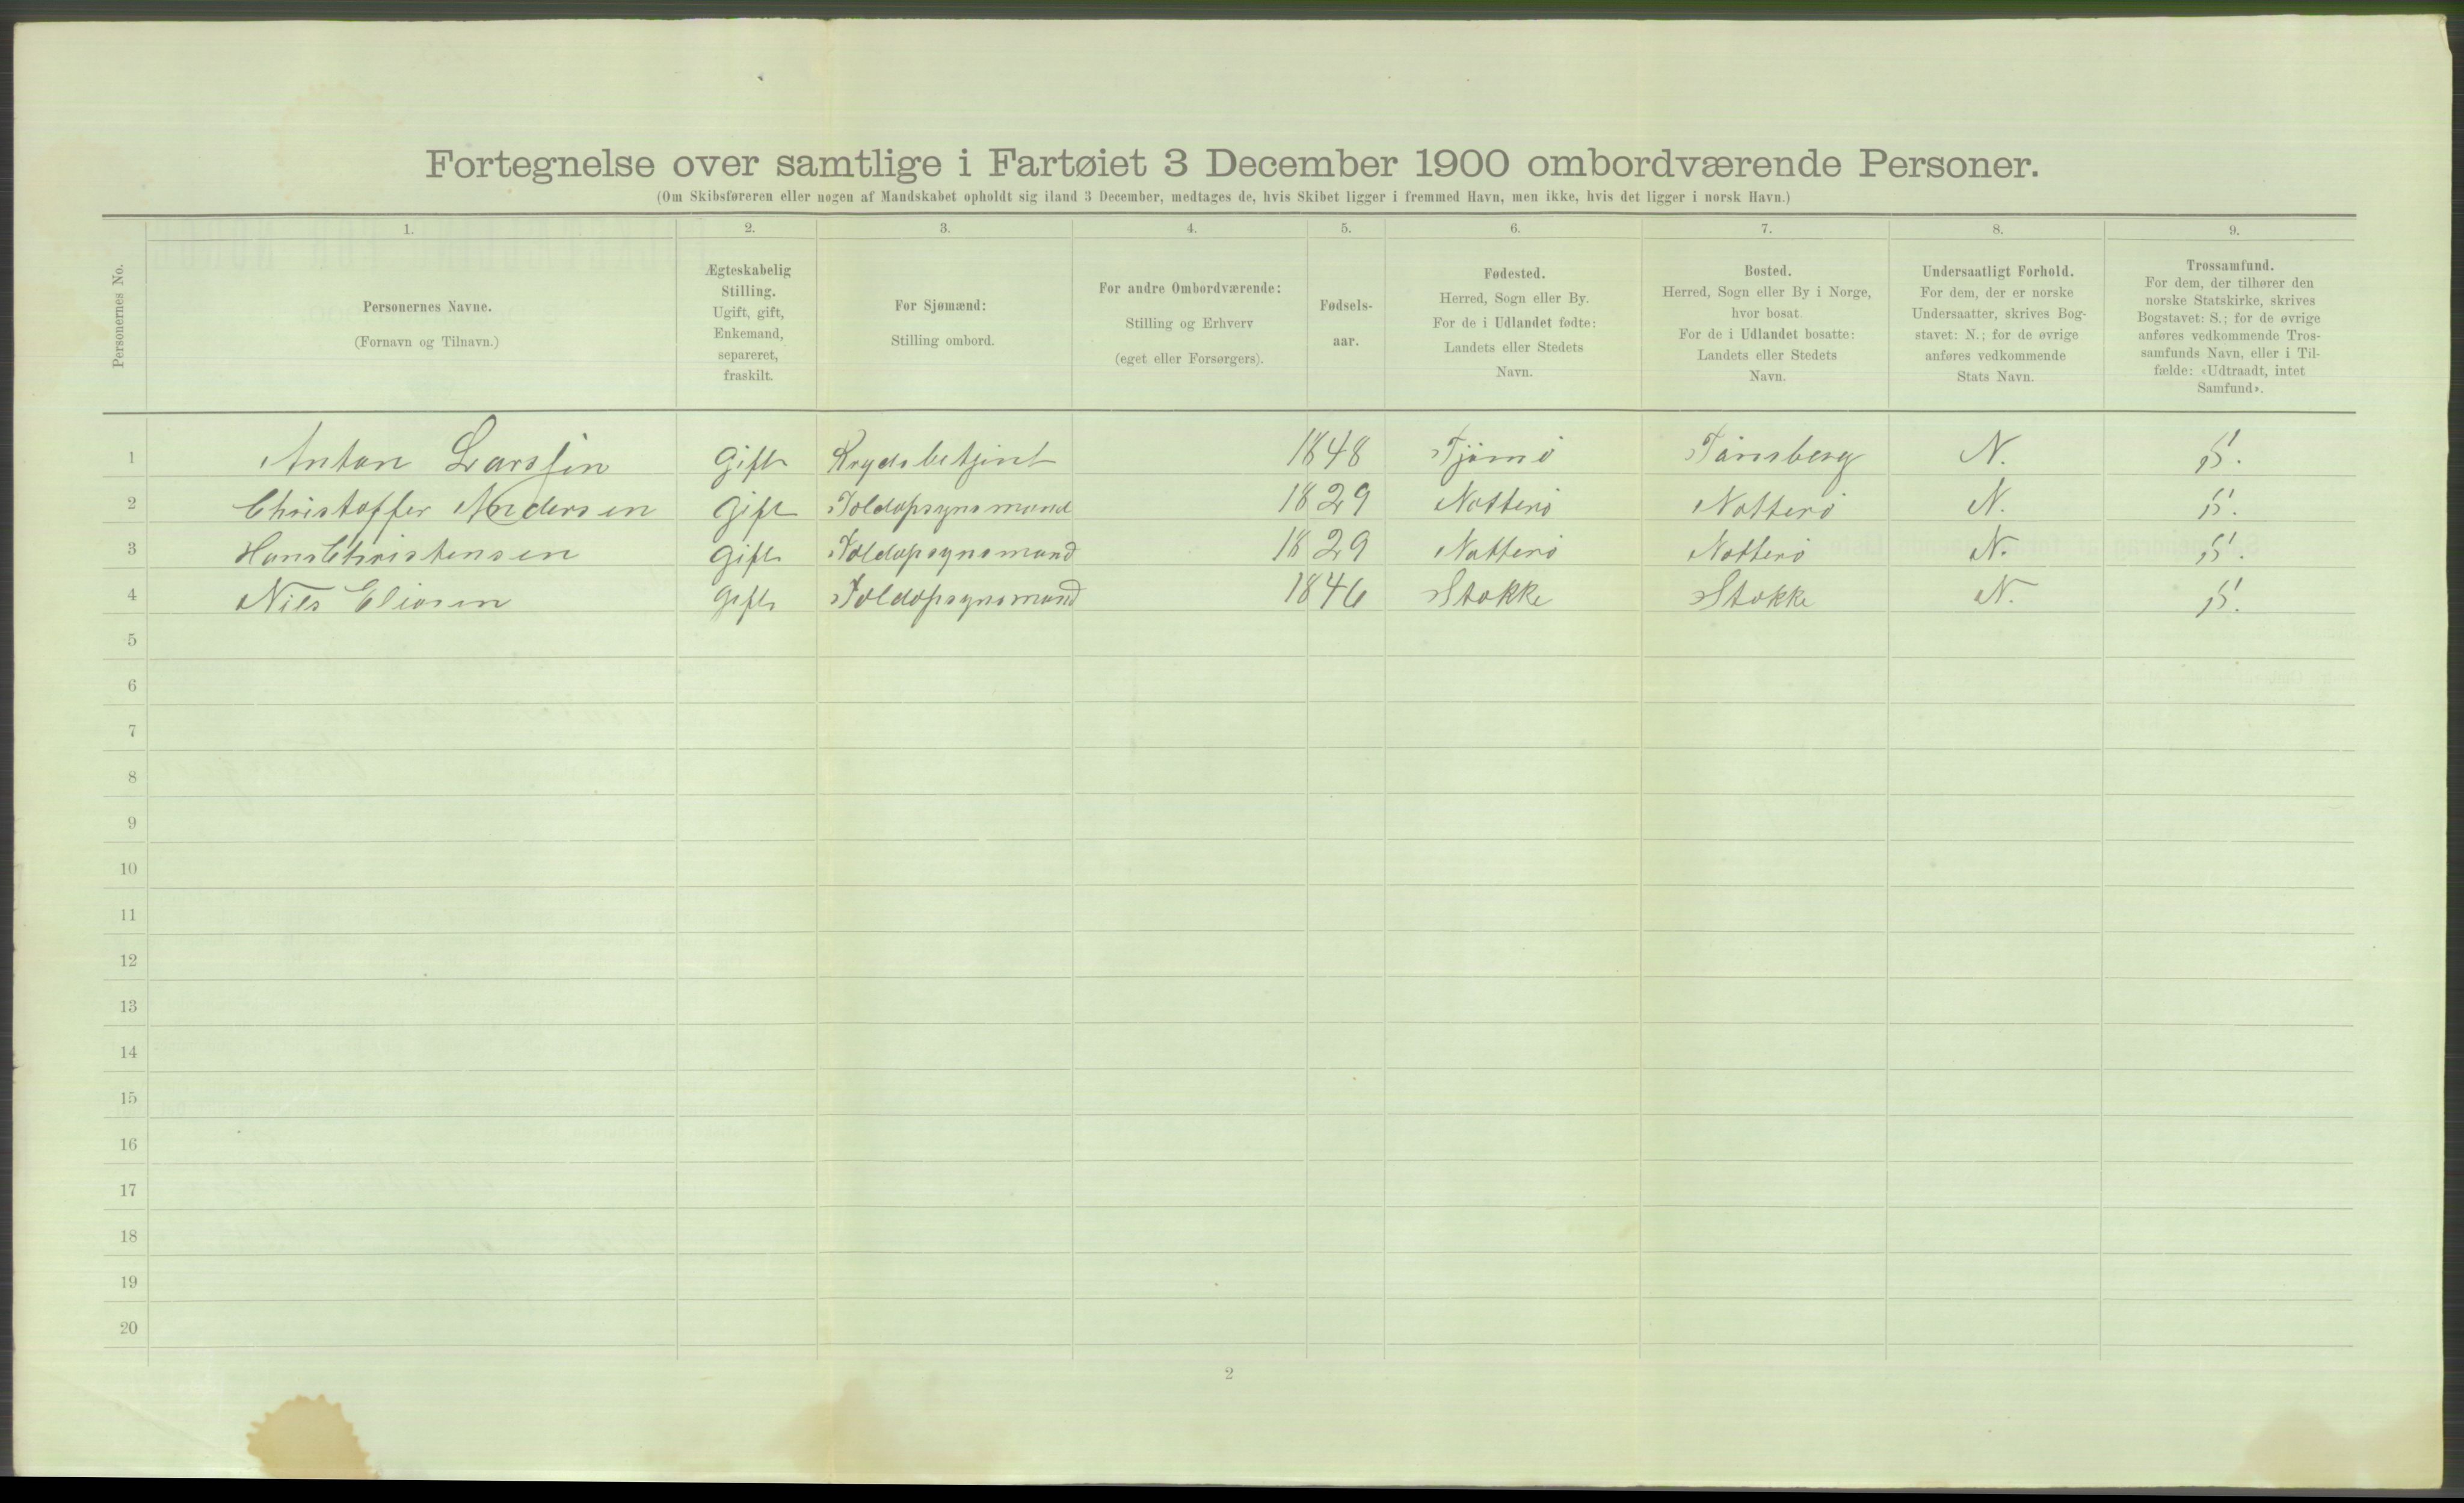 Fortegnelse over samtlige i Fartøiet 3 December 1900 ombordværende Personer.
(Om Skibsføreren eller nogen af Mandskabet opholdt sig iland 3 December, medtages de, hvis Skibet ligger i fremmed Havn, men ikke, hvis det ligger i norsk Havn.)
Personernes No.
1.
Personernes Navne.
(Fornavn og Tilnavn.)
2.
Ægteskabelig
Stilling.
Ugift, gift,
Enkemand,
separeret,
fraskilt.
3.
For Sjømænd:
Stilling ombord.
4.
For andre Ombordværende:
Stilling og Erhverv
(eget eller Forsørgers).
5.
Fødsels-
aar.
6.
Fødested.
Herred, Sogn eller By.
For de i Udlandet fødte:
Landets eller Stedets
Navn.
7.
Bosted.
Herred, Sogn eller By i Norge,
hvor bosat.
For de i Udlandet bosatte:
Landets eller Stedets
Navn.
8.
Undersaatligt Forhold.
For dem, der er norske
Undersaatter, skrives Bog-
stavet: N.; for de øvrige
anføres vedkommende
Stats Navn.
9.
Trossamfund.
For dem, der tilhører den
norske Statskirke, skrives
Bogstavet: S.; for de øvrige
anføres vedkommende Tros-
samfunds Navn, eller i Til-
fælde: «Udtraadt, intet
Samfund».
1 Anton Larssen Gift Krydsbetjent 1848 Tjømø Tønsberg N. S.
2 Christoffer Andersen Gift Toldopsynsmand 1829 Nøtterø Nøtterø N. S.
3 Hans Christensen Gift Toldopsynsmand 1829 Nøtterø Nøtterø N. S.
4 Nils Eliasen Gift Toldopsynsmand 1846 Stokke Stokke N. S.
5
6
7
8
9
10
11
12
13
14
15
16
17
18
19
20
2